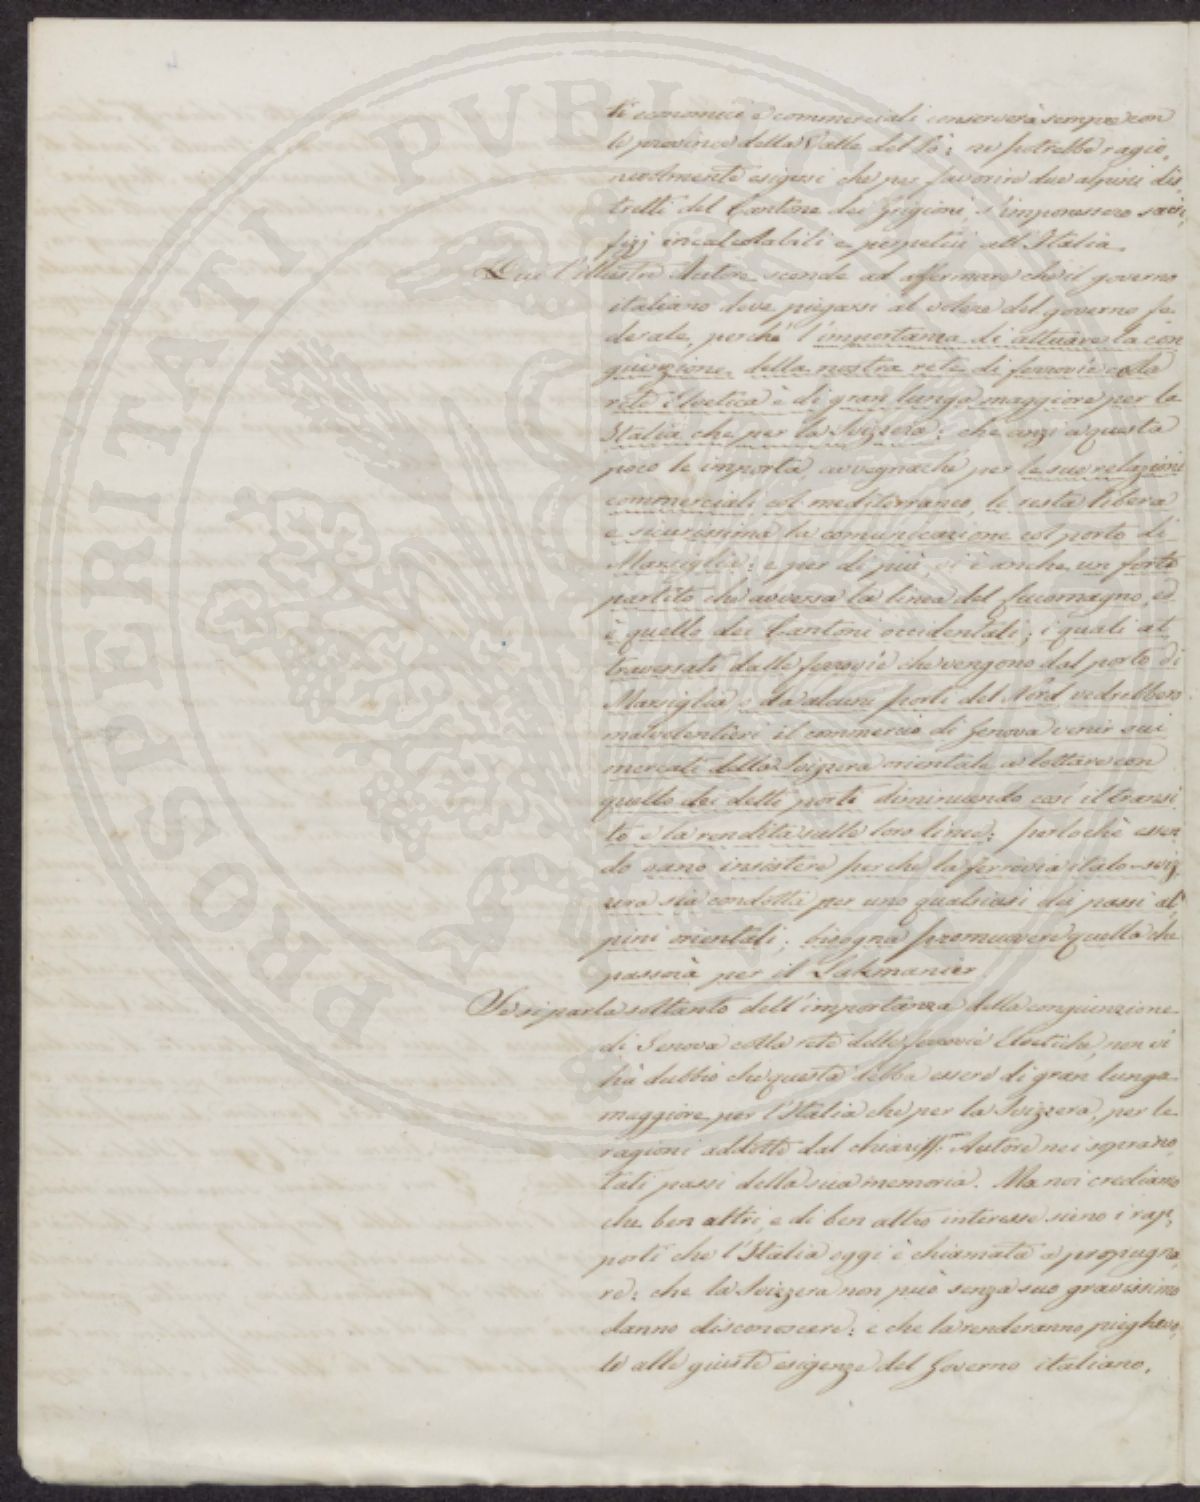 ti economici e commerciali conserverà sempre con
le province della Valle del Pò; ne potrebbe ragio,
nevolmente esigersi che per favorire due alpini dis,
tretti del Cantone dei Grigioni, s'imponessero sacri,
fizj incalcolabili e perpetui all'Italia.
Qui l'illustre Autore scende ad affermare che il governo
italiano deve piegarsi al volere del governo fe,
derale, perchè l'importanza di attuare la con
giunzione della nostra rete di ferrovie colla
rete Elvetica è di gran lunga maggiore per la
Italia che per la Svizzera; che anzi a questa
poco le importa, avvegnachè per le sue relazioni
commerciali col mediterraneo, le resta libera
e sicurissima la comunicazione col porto di
Marsiglia; e per di più, vi è anche un forte
partito che avversa la linea del Lucomagno, ed
è quello dei Cantoni occidentali; i quali at
traversati dalle ferrovie che vengono dal porto di
Marsiglia, e da alcuni porti del Nord, vedrebbero
malvolentieri il commercio di Genova venir sui
mercati della Svizzera orientale a lottare con
quello dei detti porti diminuendo così il transi
to e la rendita sulle loro linee; perlochè essen
do vano insistere perchè la ferrovia italo-sviz,
zera sia condotta per uno qualsiasi dei passi al,
pini orientali; bisogna promuovere quella che
passerà per il Lukmanier.
Se si parla soltanto dell'importanza della congiunzione
di Genova colla rete delle ferrovie Elvetiche, non vi
hà dubbio che questa debba essere di gran lunga
maggiore per l'Italia che per la Svizzera, per le
ragioni addotte dal chiariss.mo Autore nei sopranno,
tati passi della sua memoria. Ma noi crediamo
che ben altri, e di ben altro interesse sieno i rap,
porti che l'Italia oggi è chiamata a propugna,
re; che la Svizzera non può senza suo gravissimo
danno disconoscere; e che la renderanno pieghevo,
le alle giuste esigenze del Governo italiano.
PROSPERITATI PVBLICAE